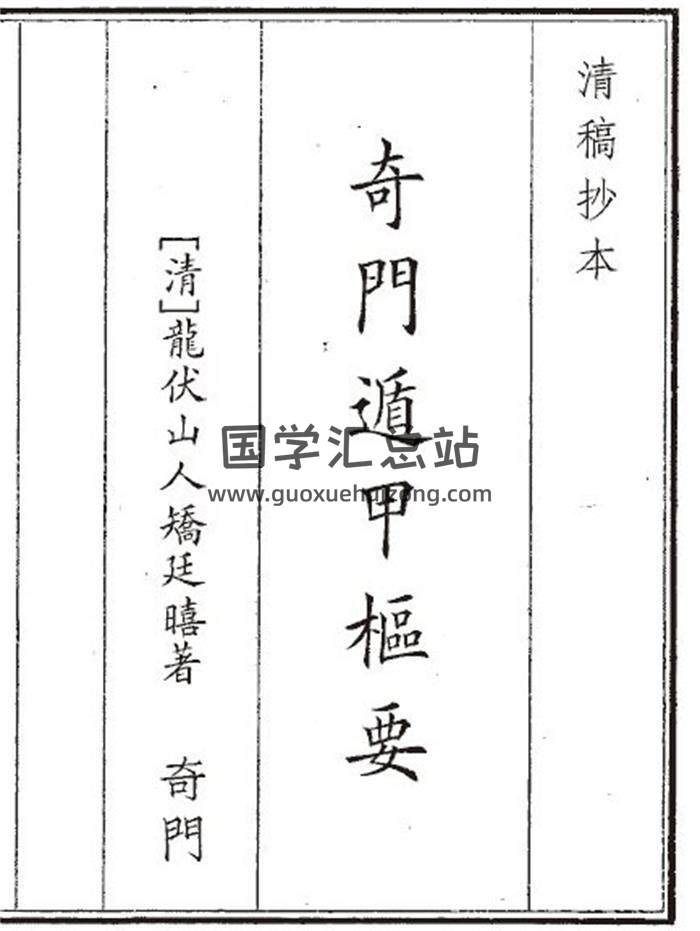 清稿抄本
奇門遁甲樞要
[清]龍伏山人矯廷暿著 奇門
国学汇总站
www.guoxuehuizong.com